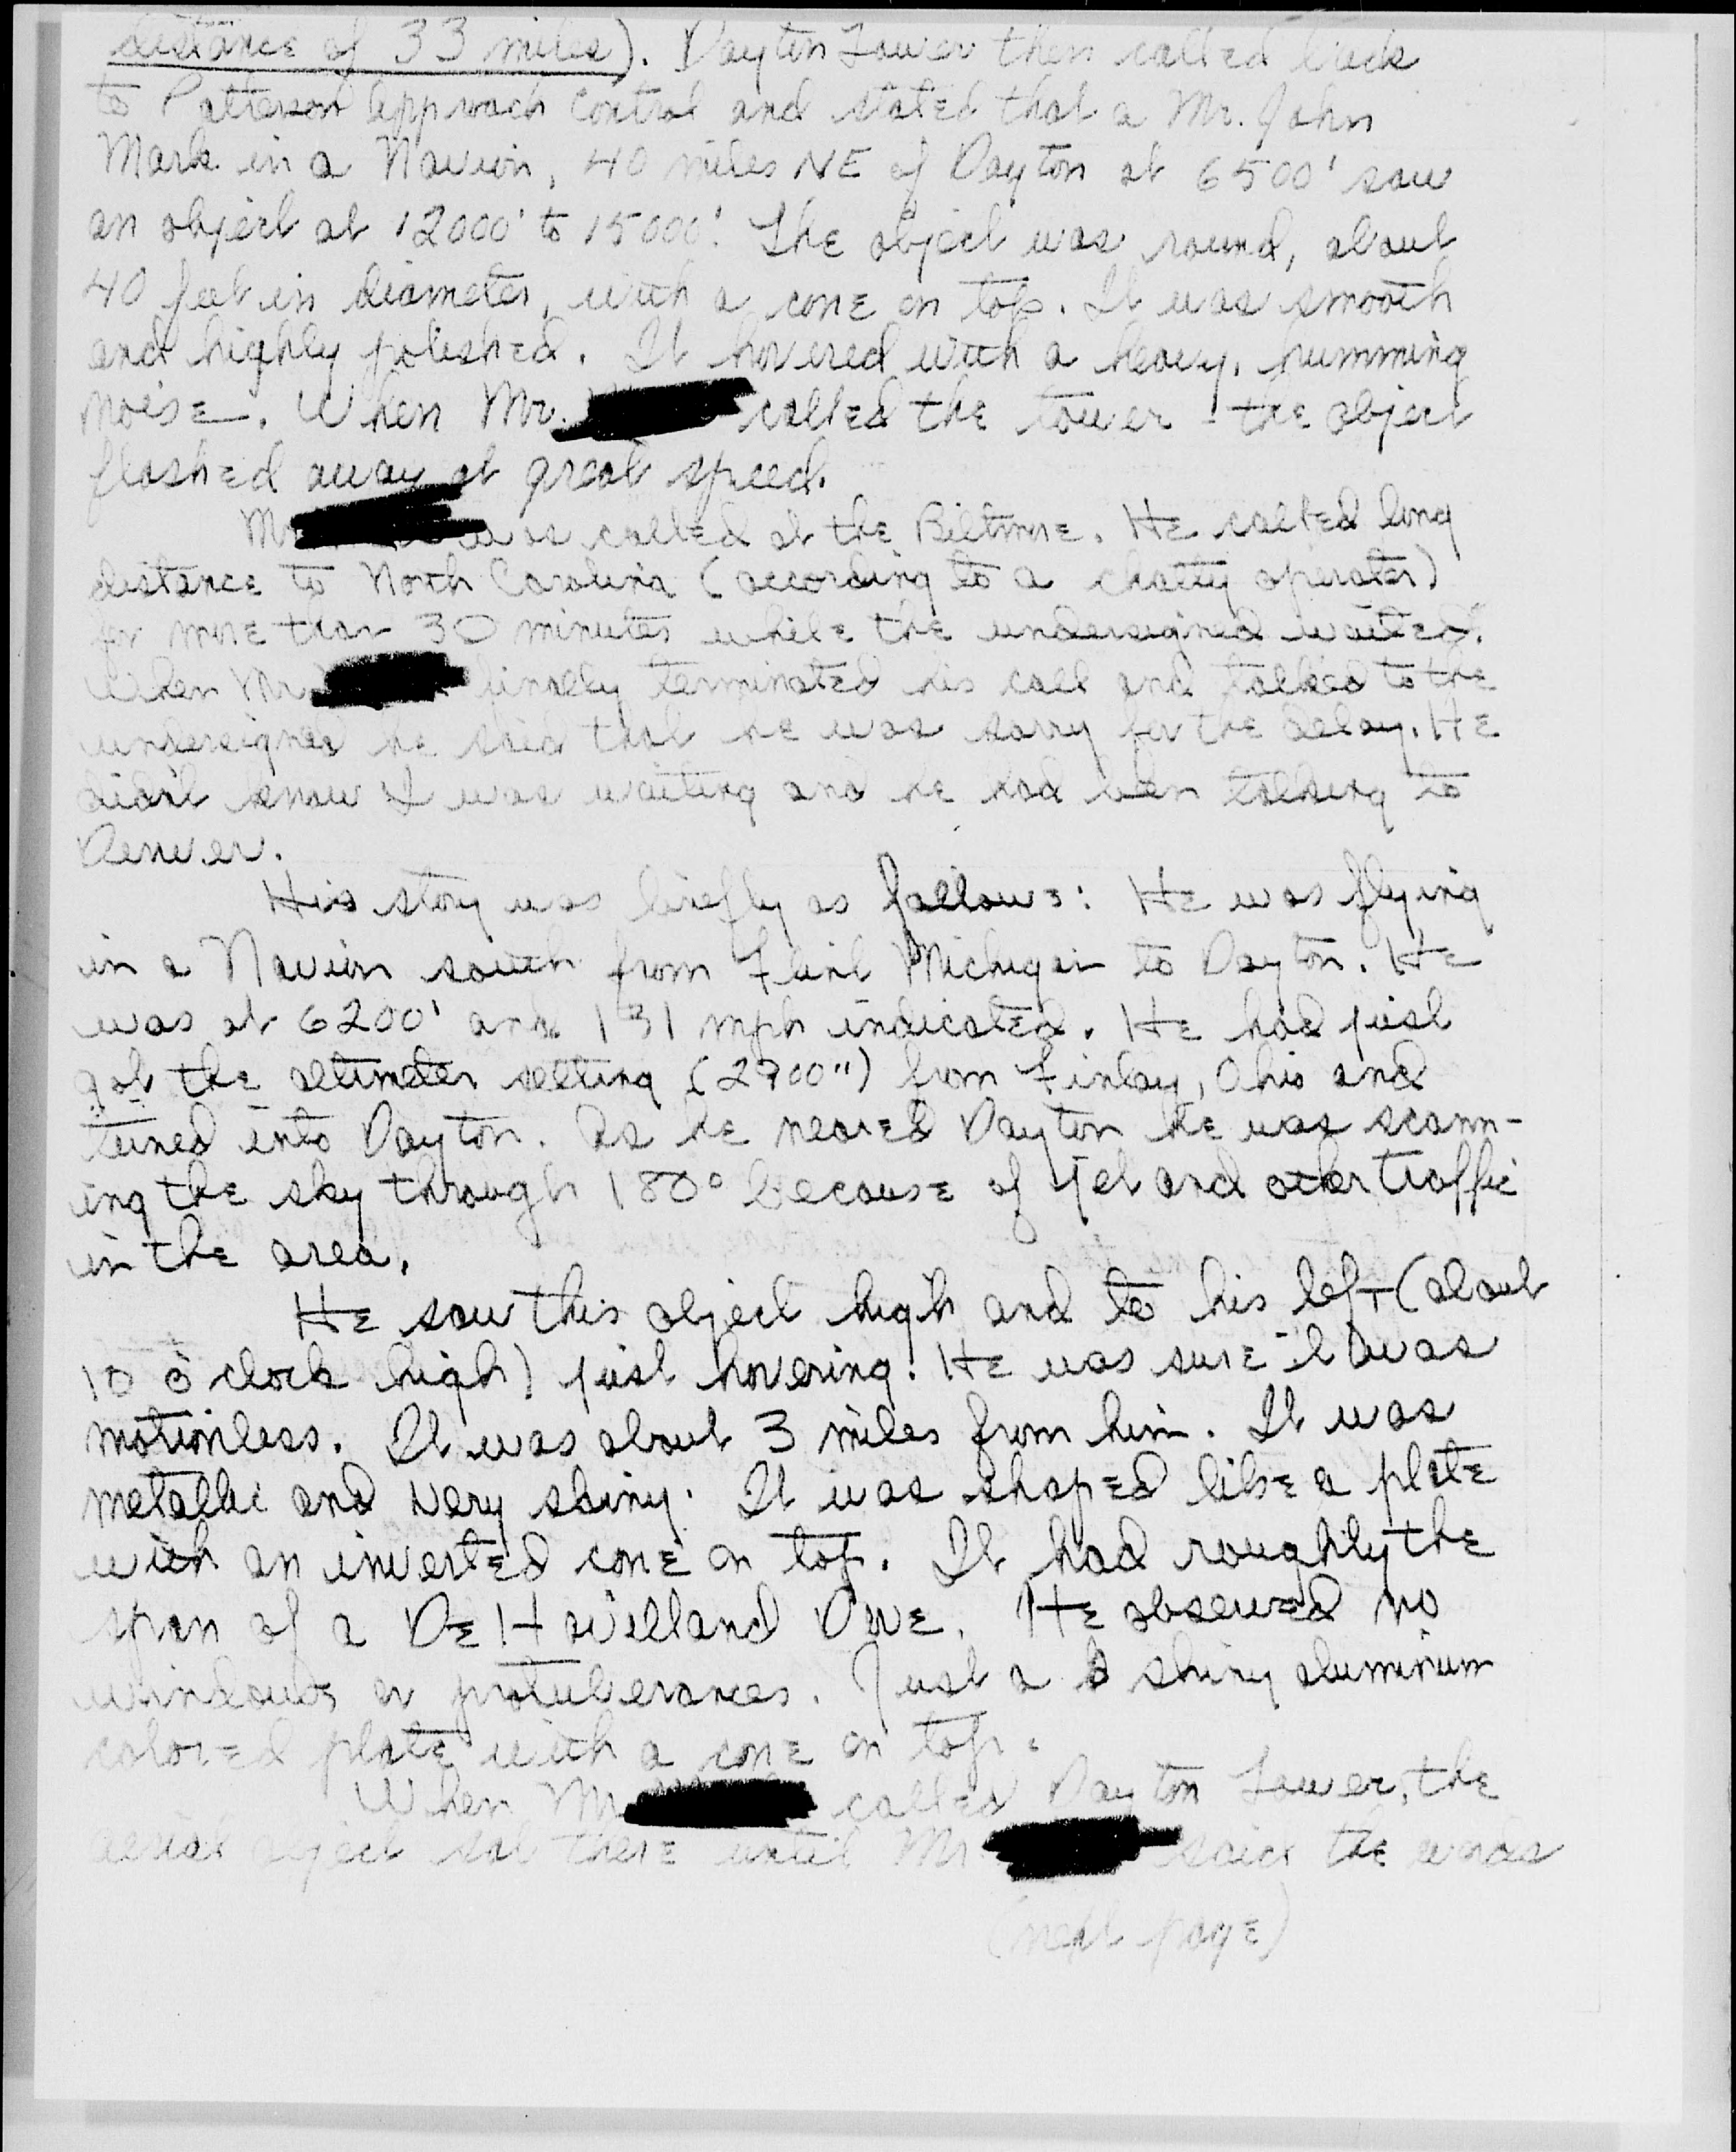 distance of 33 miles). Dayton Tower then called back
to Patterson Approach Control and stated that a Mr. John
Mark in a Navion, 40 miles NE of Dayton at 6500' saw
an object at 12000' to 15000'. The object was round, about
40 feet in diameter, with a cone on top. It was smooth
and highly polished. It hovered with a heavy, humming
noise. When Mr. called the tower - the object
flashed away at great speed.
Mr was called at the Biltmore. He called long
distance to North Carolina (according to a chatty operator)
for more than 30 minutes while the undersigned waited.
When Mr. finally terminated his call and talked to the
undersigned he said that he was sorry for the delay. He
didn't know I was waiting and he had been talking to
Denver.
His story was briefly as follows: He was flying
in a Navion south from Flint Michigan to Dayton. He
was at 6200' and 131 mph indicated. He had just
got the altimeter setting (2900") from Finlay, Ohio and
tuned into Dayton. As he neared Dayton he was scann-
ing the sky through 180° because of jet and other traffic
in the area.
He saw this object high and to his left (about
10 o'clock high) just hovering. He was sure it was
motionless. It was about 3 miles from him. It was
metallic and very shiny. It was shaped like a plate
with an inverted cone on top. It had roughly the
span of a DeHavilland Dove. He observed no
windows or protuberances. Just a shiny aluminum
colored plate with a cone on top.
When Mr called Dayton Tower, the
aerial object sat there until Mr said the words
(next page)